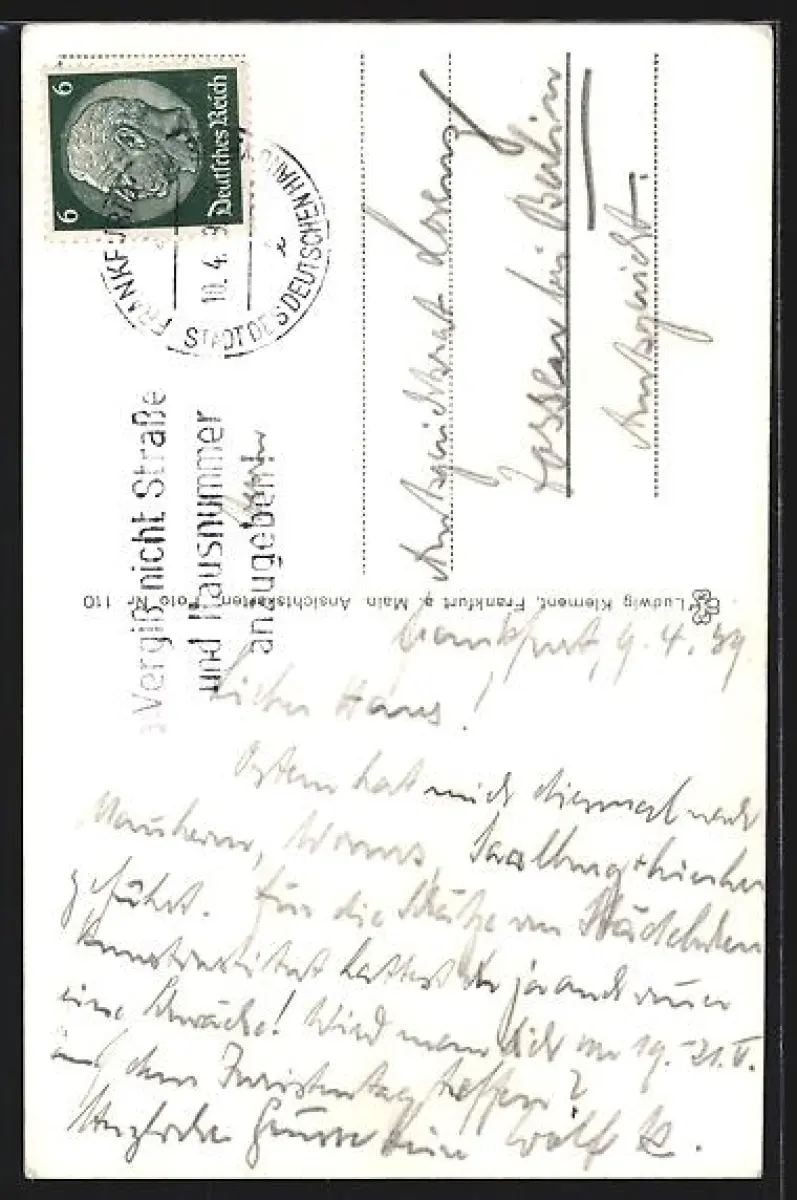 Deutsches Reich
6 6
FRANKFURT
10.4.3
STADT DES DEUTSCHEN HAND
Vergiß nicht Straße
und Hausnummer
anzugeben!
Amtsgerichtsrat Lorenz
Zossen bei Berlin
Amtsgericht.
Ludwig Klement, Frankfurt a. Main. Ansichtskarten, Foto Nr. 110
Frankfurt, 9.4.39
Lieber Hans!
Ostern hat mich diesmal nach
Mannheim, Worms, Saalburg + hierher
geführt. Für die Schätze im Städelschen
Kunstinstitut hattest du ja auch immer
eine Schwäche! Wird man dich vom 19.-21.V.
auf dem Juristentag treffen?
Herzliche Grüsse dein Wolf